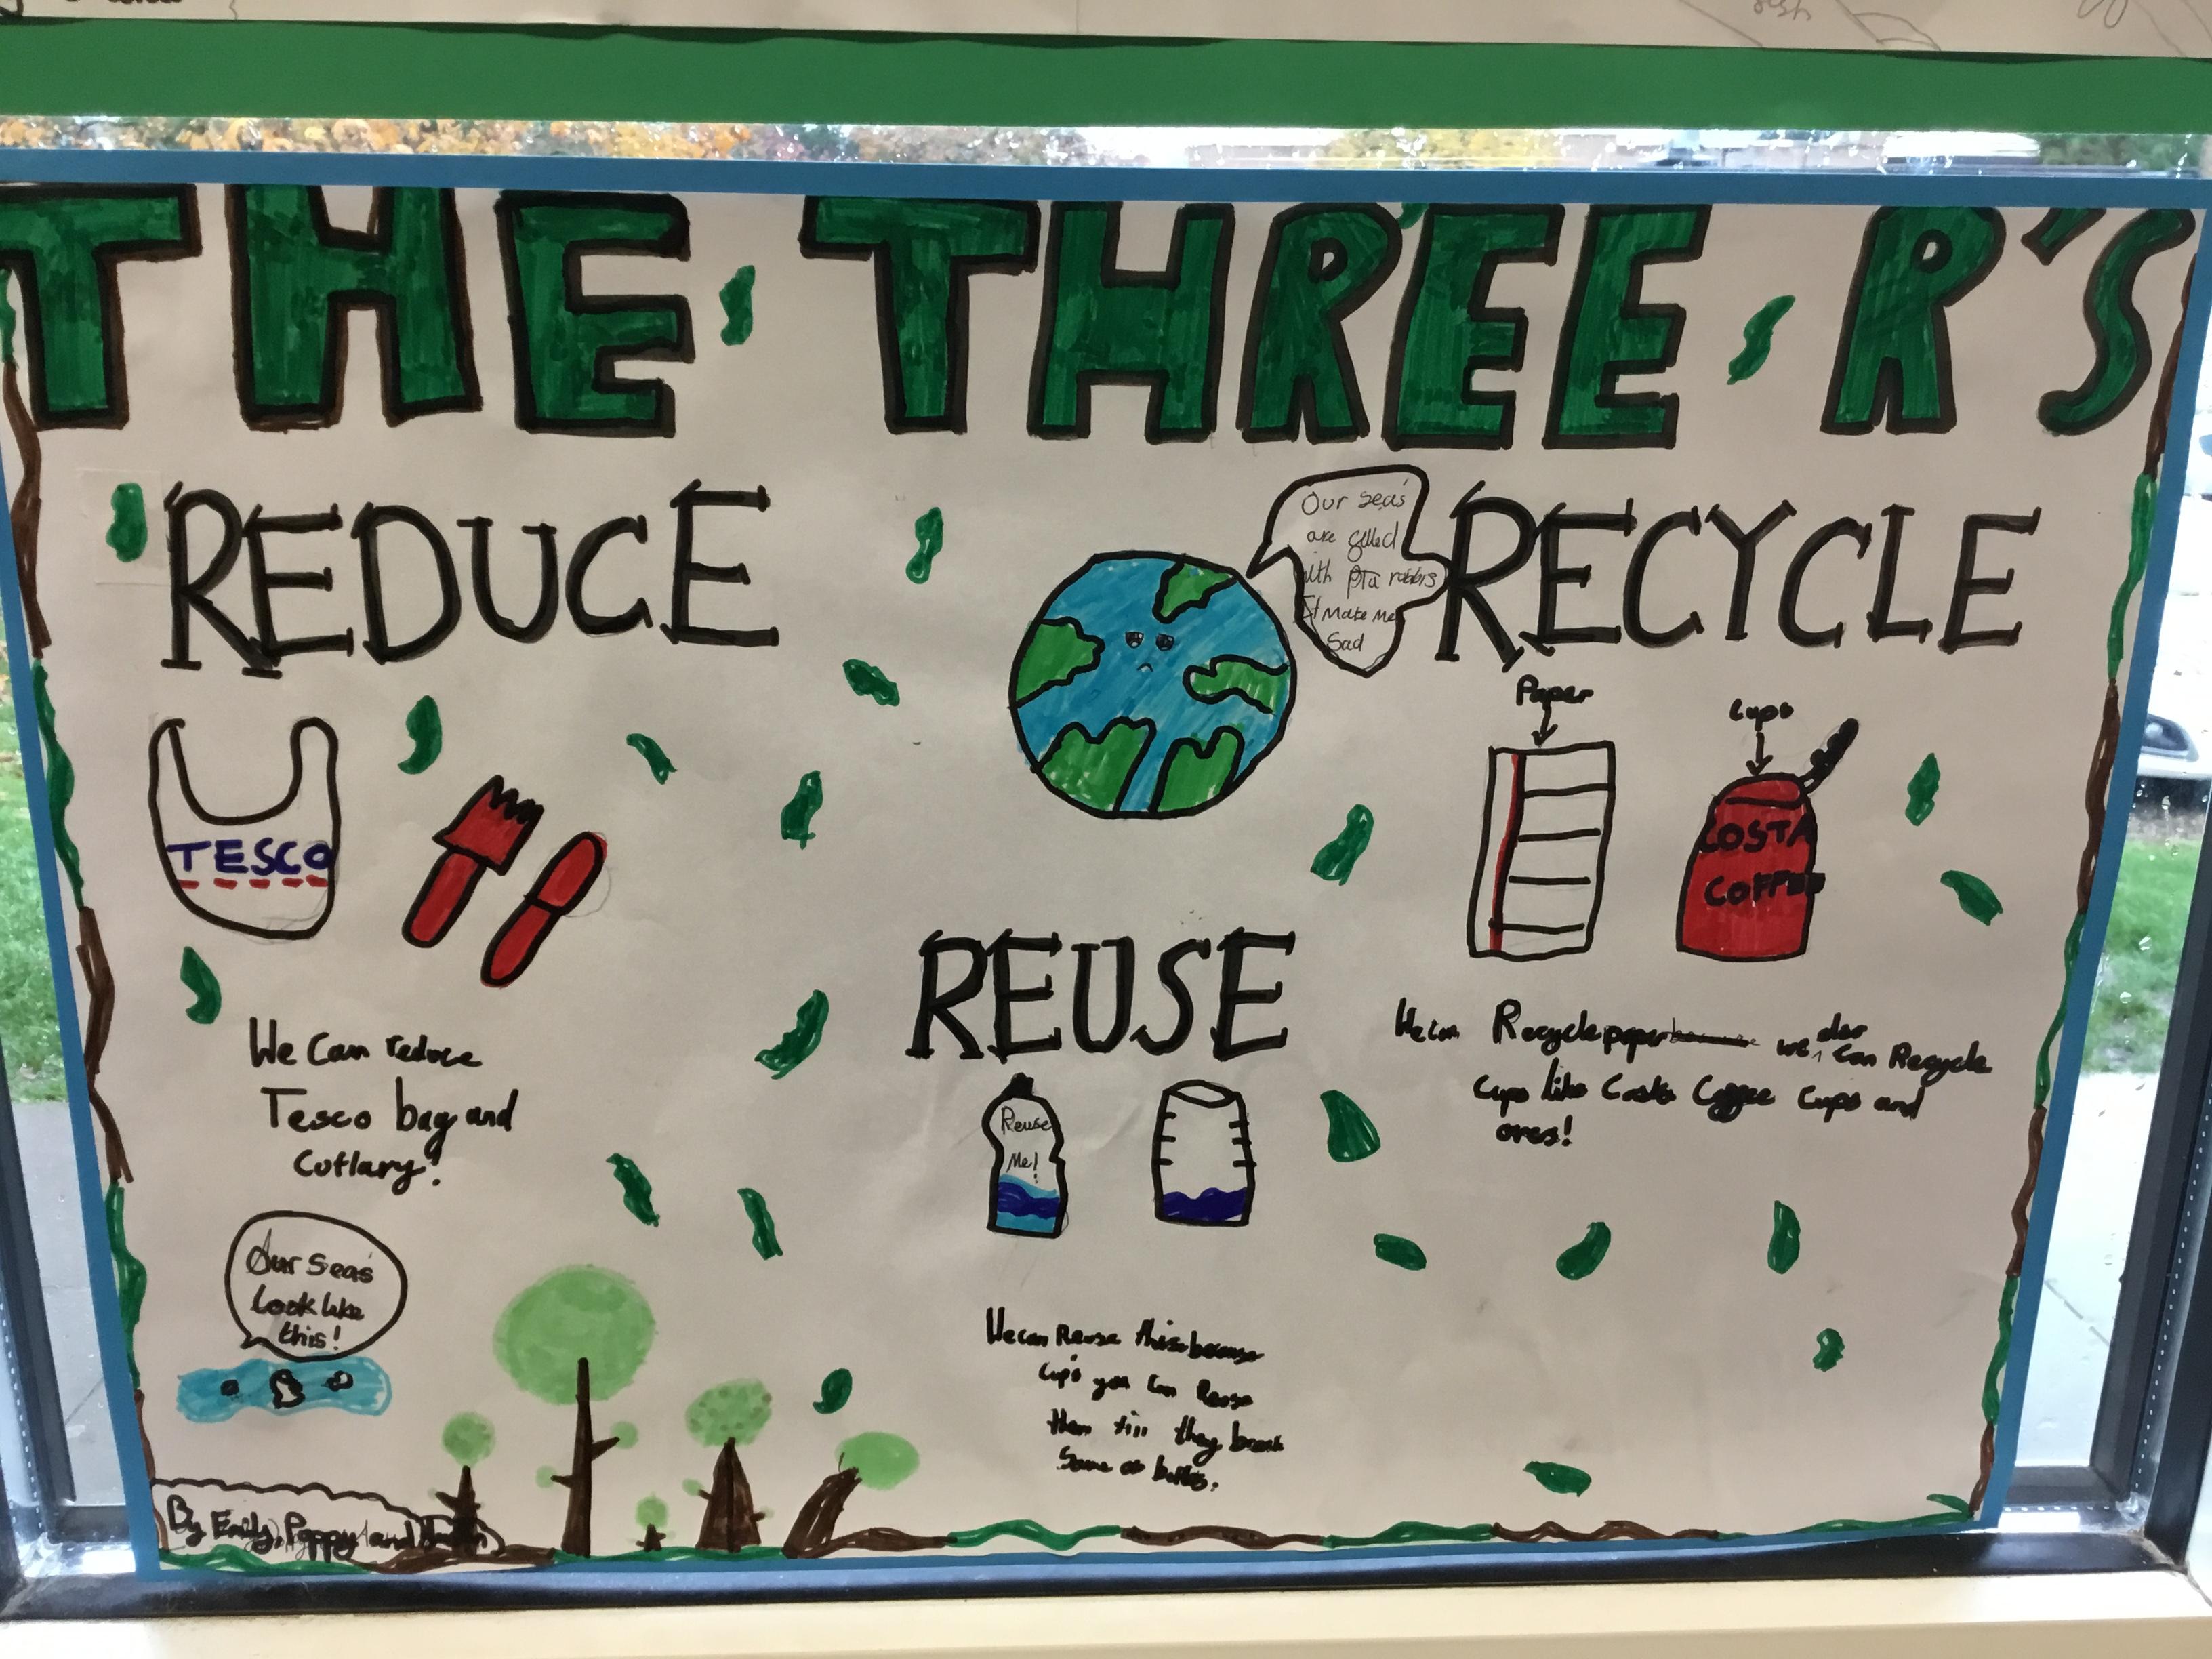 THE THREE R'S
REDUCE
RECYCLE
Our seas'
are filled
It Make Me
Sad
Paper
Cups
TESCO
COSTA
COFFEE
REUSE
We Can reduce
Tesco bag and
Cutlary!
We can Recycle paper we can Recycle
Cups like Costa Coffee Cups and
ores!
Reuse
Me!
Our Seas'
Look like
this!
We can Reuse this because
Cup's you Can Reuse
them till they break
Same as bottles.
By Emily, Poppy and